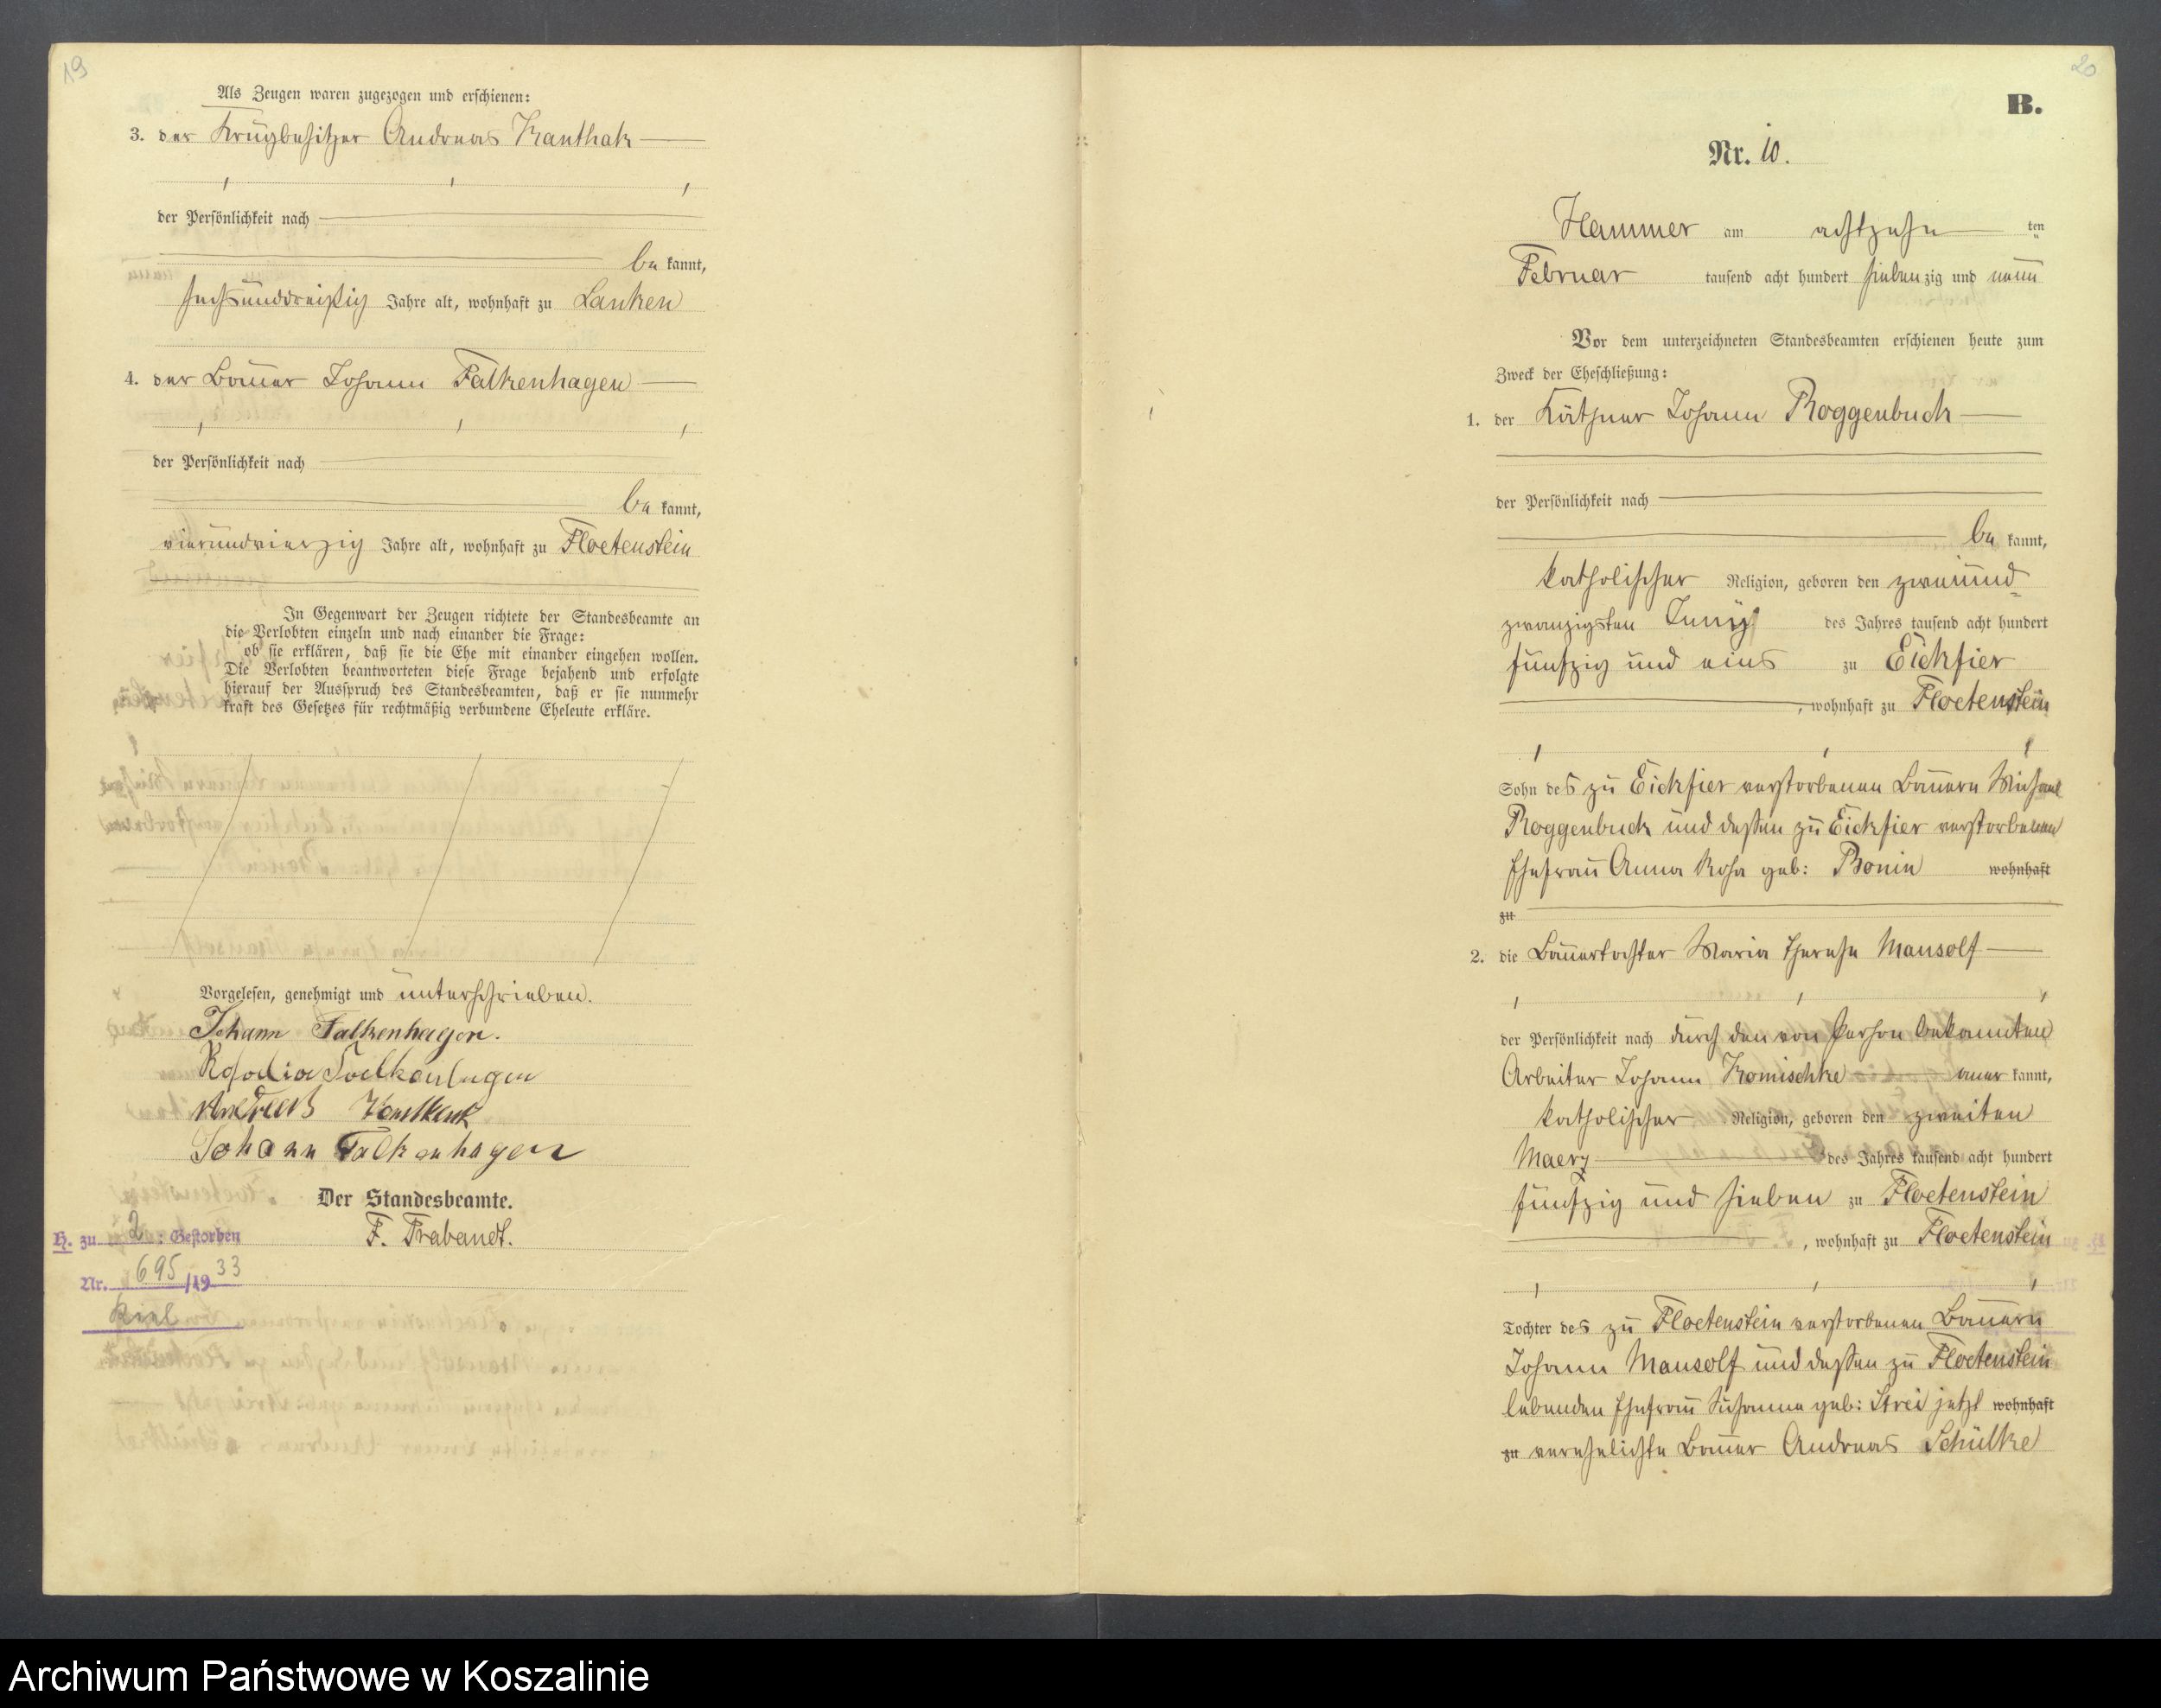 19
Als Zeugen waren zugezogen und erschienen:
3. der Krugbesitzer Andreas Kanthak
der Persönlichkeit nach
be kannt,
sechsunddreißig Jahre alt, wohnhaft zu Lanken
4. der Bauer Johann Falkenhagen
der Persönlichkeit nach
be kannt,
vierundvierzig Jahre alt, wohnhaft zu Floetenstein
In Gegenwart der Zeugen richtete der Standesbeamte an
die Verlobten einzeln und nach einander die Frage:
ob sie erklären, daß sie die Ehe mit einander eingehen wollen.
Die Verlobten beantworteten diese Frage bejahend und erfolgte
hierauf der Ausspruch des Standesbeamten, daß er sie nunmehr
kraft des Gesetzes für rechtmäßig verbundene Eheleute erkläre.
Vorgelesen, genehmigt und unterschrieben.
Johann Falkenhagen.
Rosalia Falkenhagen
Andreas Kanthak
Johann Falkenhagen
Der Standesbeamte.
F. Trabandt.
H. zu 2: Gestorben
Nr. 695/1933
Kiel
20
B.
Nr. 10.
Hammer am achtzehn ten
Februar tausend acht hundert siebenzig und neun
Vor dem unterzeichneten Standesbeamten erschienen heute zum
Zweck der Eheschließung:
1. der Käthner Johann Roggenbuck
der Persönlichkeit nach
be kannt,
katholischer Religion, geboren den zweiund-
zwanzigsten des Jahres tausend acht hundert
fünfzig und eins zu Eickfier
, wohnhaft zu Floetenstein
Sohn des zu Eickfier verstorbenen Bauern Michael
Roggenbuck und dessen zu Eickfier verstorbenen
Ehefrau Anna Rosa geb: Bonin wohnhaft
zu
2. die Bauertochter Maria Therese Mausolf
der Persönlichkeit nach durch den von Person bekannten
Arbeiter Johann Komischke aner kannt,
katholischer Religion, geboren den zweiten
Maerz des Jahres tausend acht hundert
fünfzig und sieben zu Floetenstein
, wohnhaft zu Floetenstein
Tochter des zu Floetenstein verstorbenen Bauern
Johann Mausolf und dessen zu Floetenstein
lebenden Ehefrau Susanna geb: Strei jetzt wohnhaft
zu verehelichte Bauer Andreas Schülke
Archiwum Państwowe w Koszalinie